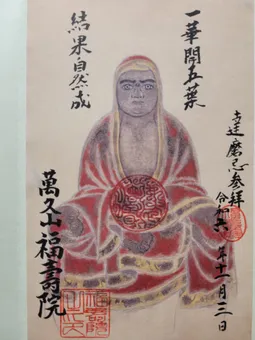 一華開五葉
結果自然成
奉拝 達磨忌参拝
令和六年十一月三日
萬久山福壽院